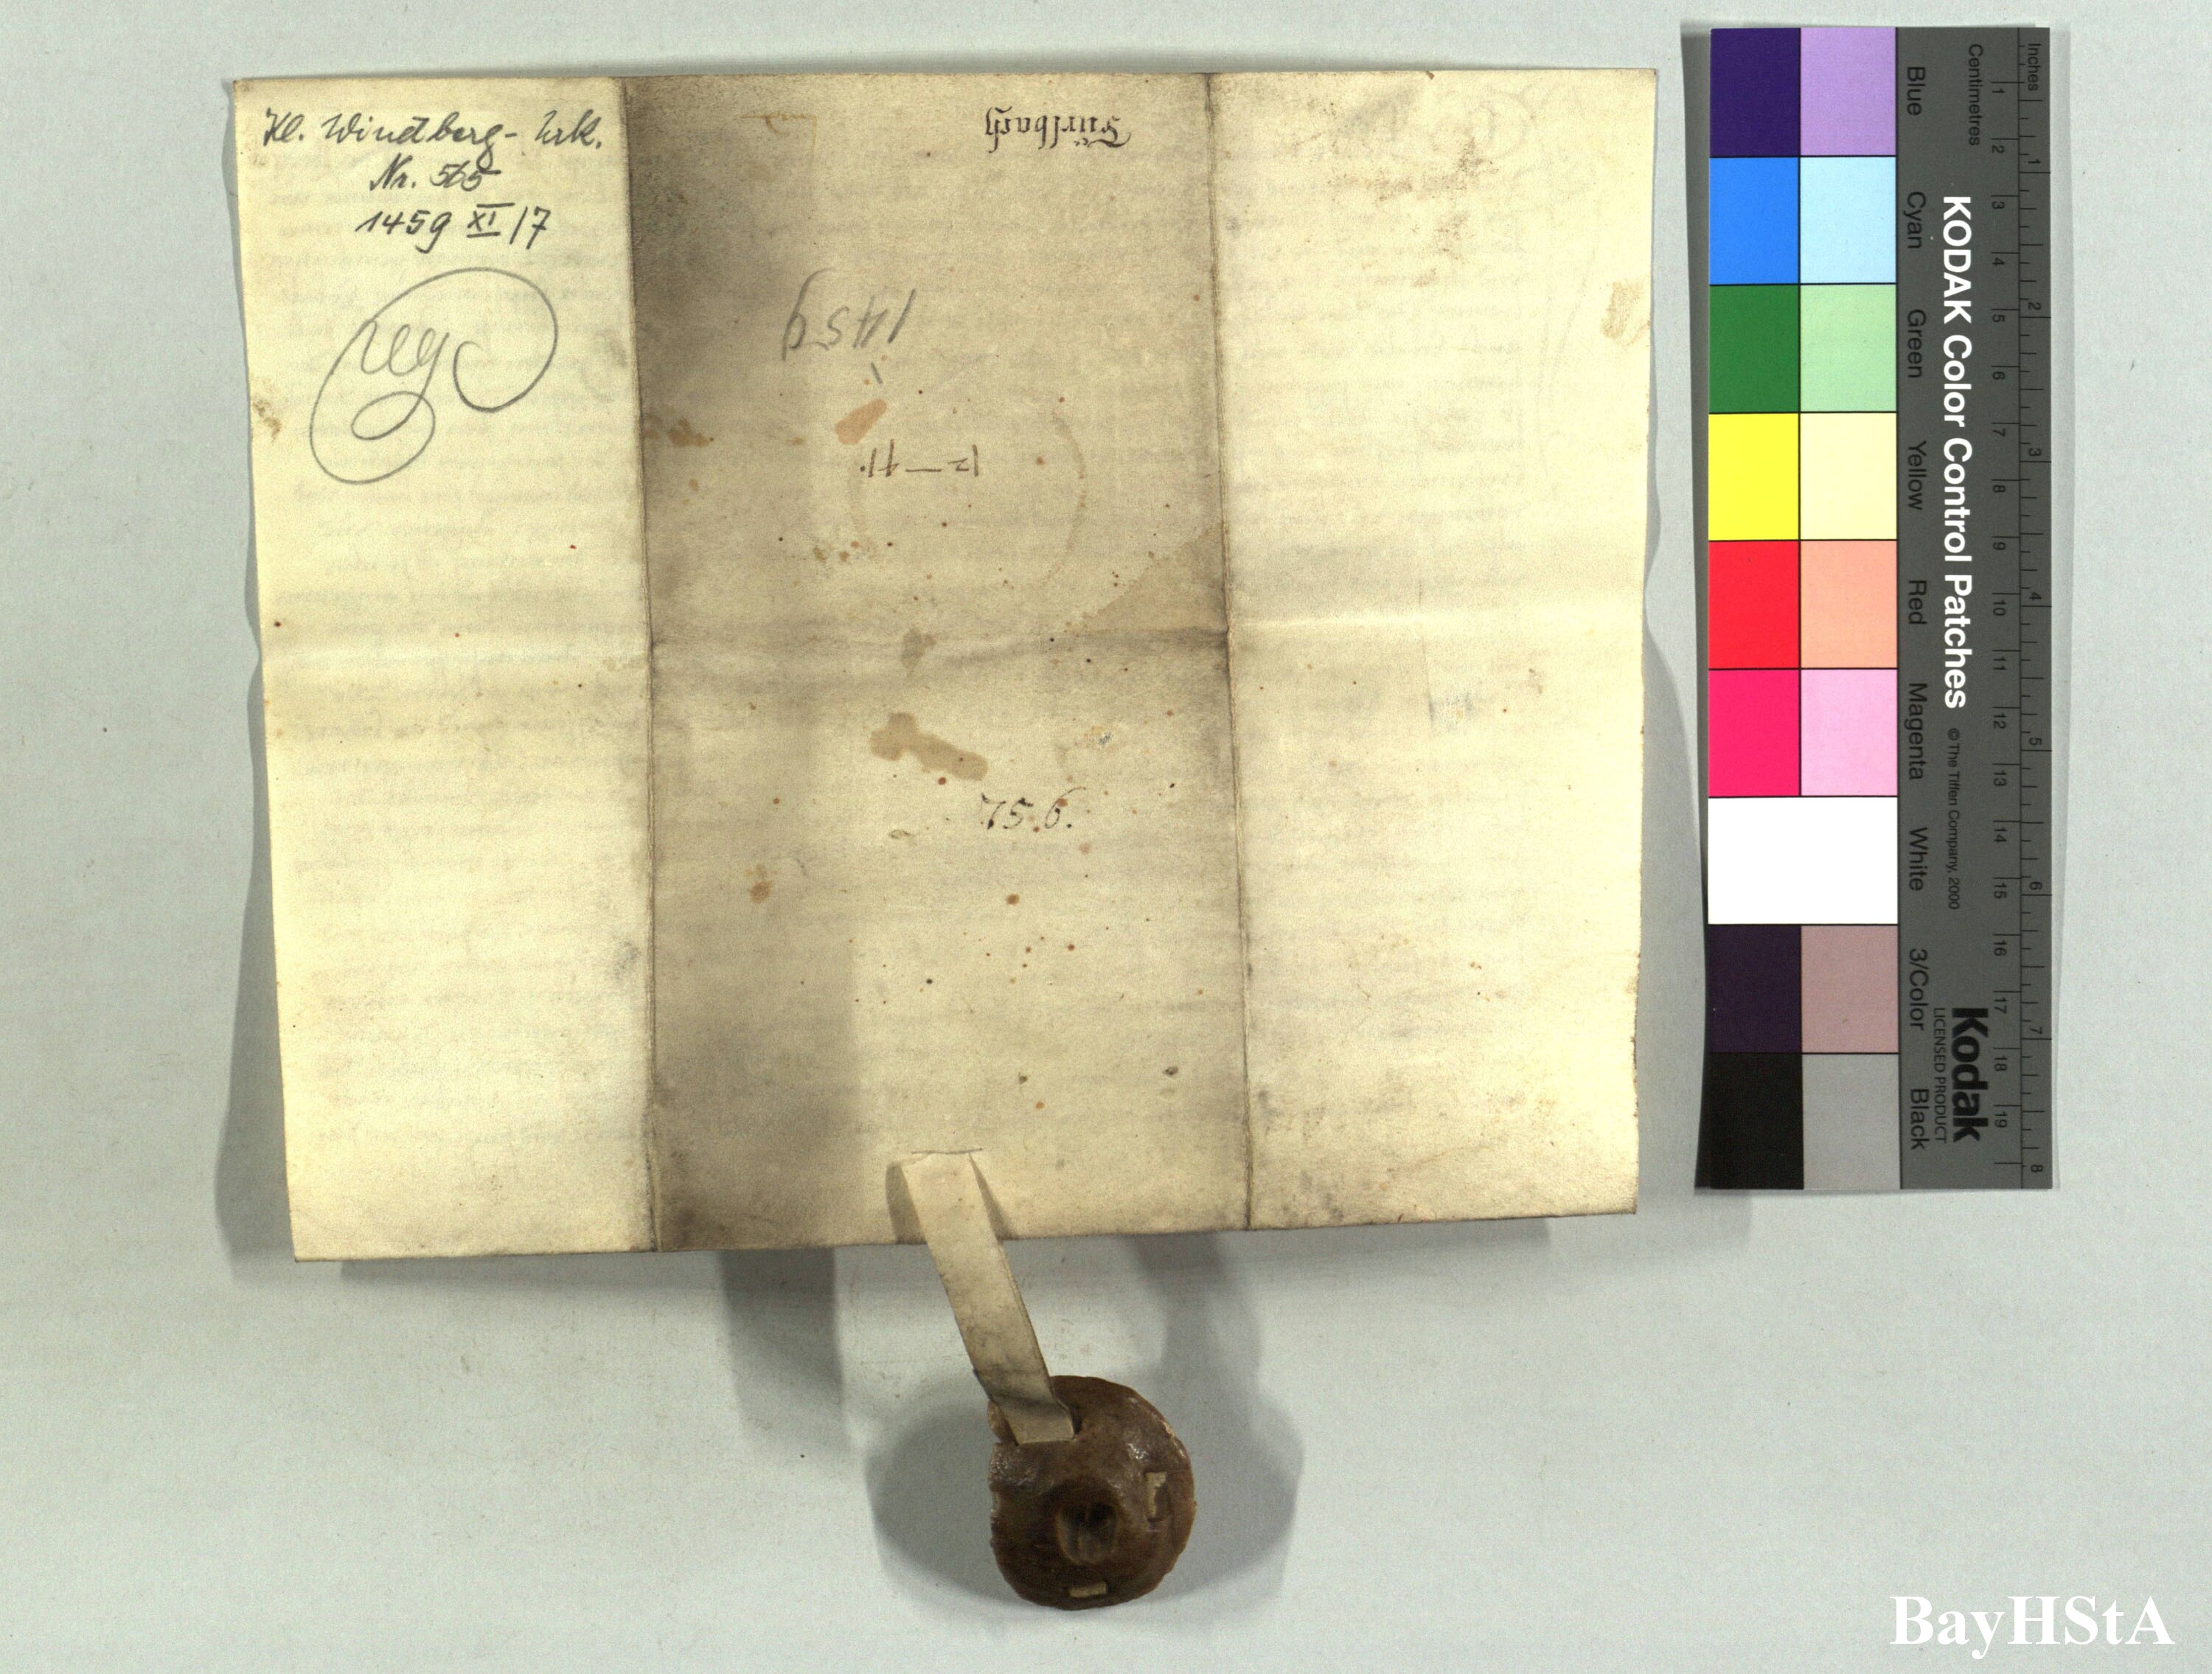 Kl. Windberg - Urk.
Nr. 565
1459 XI/7
reg
1459
75.6.
Inches
Centimetres
1 2 3 4 5 6 7 8 9 10 11 12 13 14 15 16 17 18 19
1 2 3 4 5 6 7 8
Blue Cyan Green Yellow Red Magenta White 3/Color Black
KODAK Color Control Patches © The Tiffen Company, 2000
Kodak
LICENSED PRODUCT
BayHStA